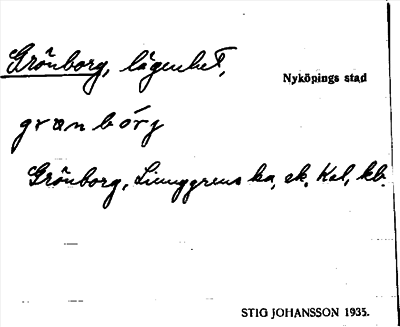 Grönborg, lägenhet,
Nyköpings stad
grœnbórj
Grönborg, Ljunggrens ka, ek. Kal, kb.
STIG JOHANSSON 1935.